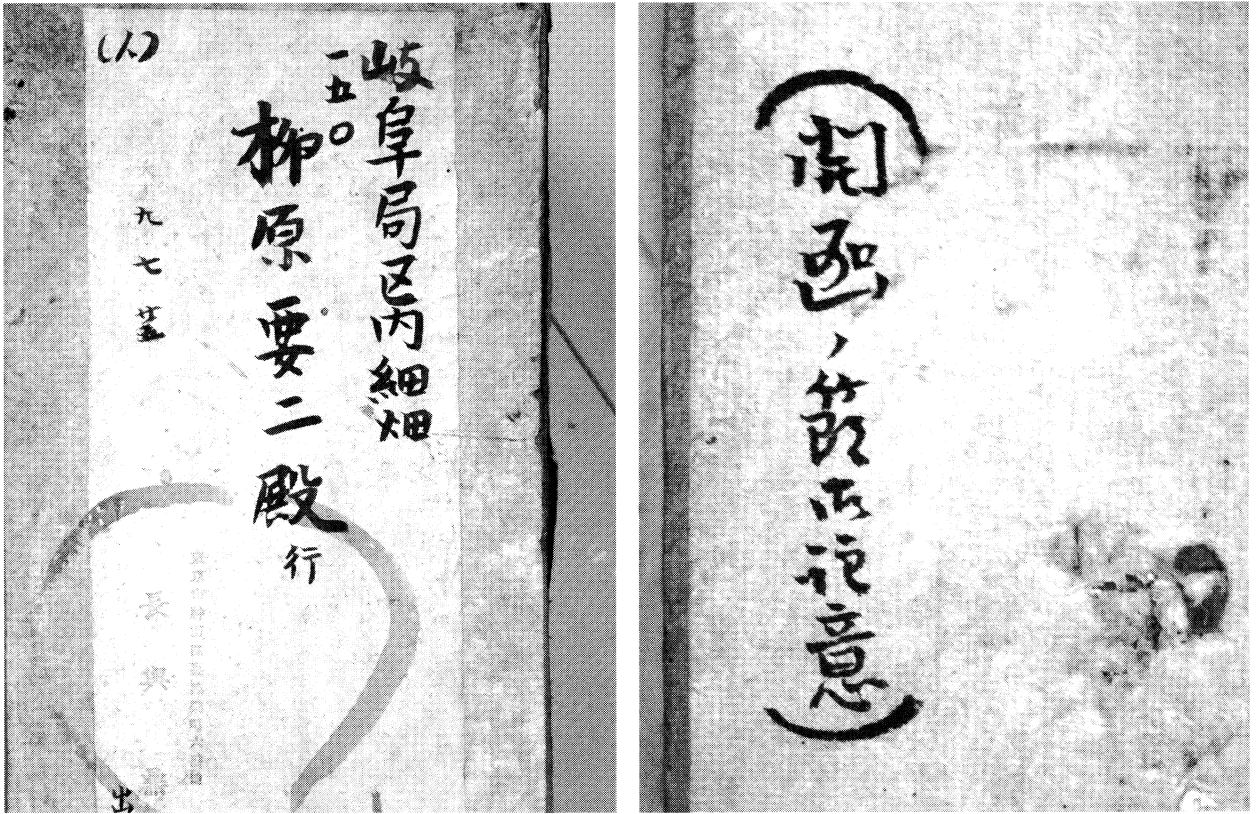 岐阜局区内細畑
一五〇
柳原要二殿
行
(人)
九七
長與
出
(開函ノ節御注意)